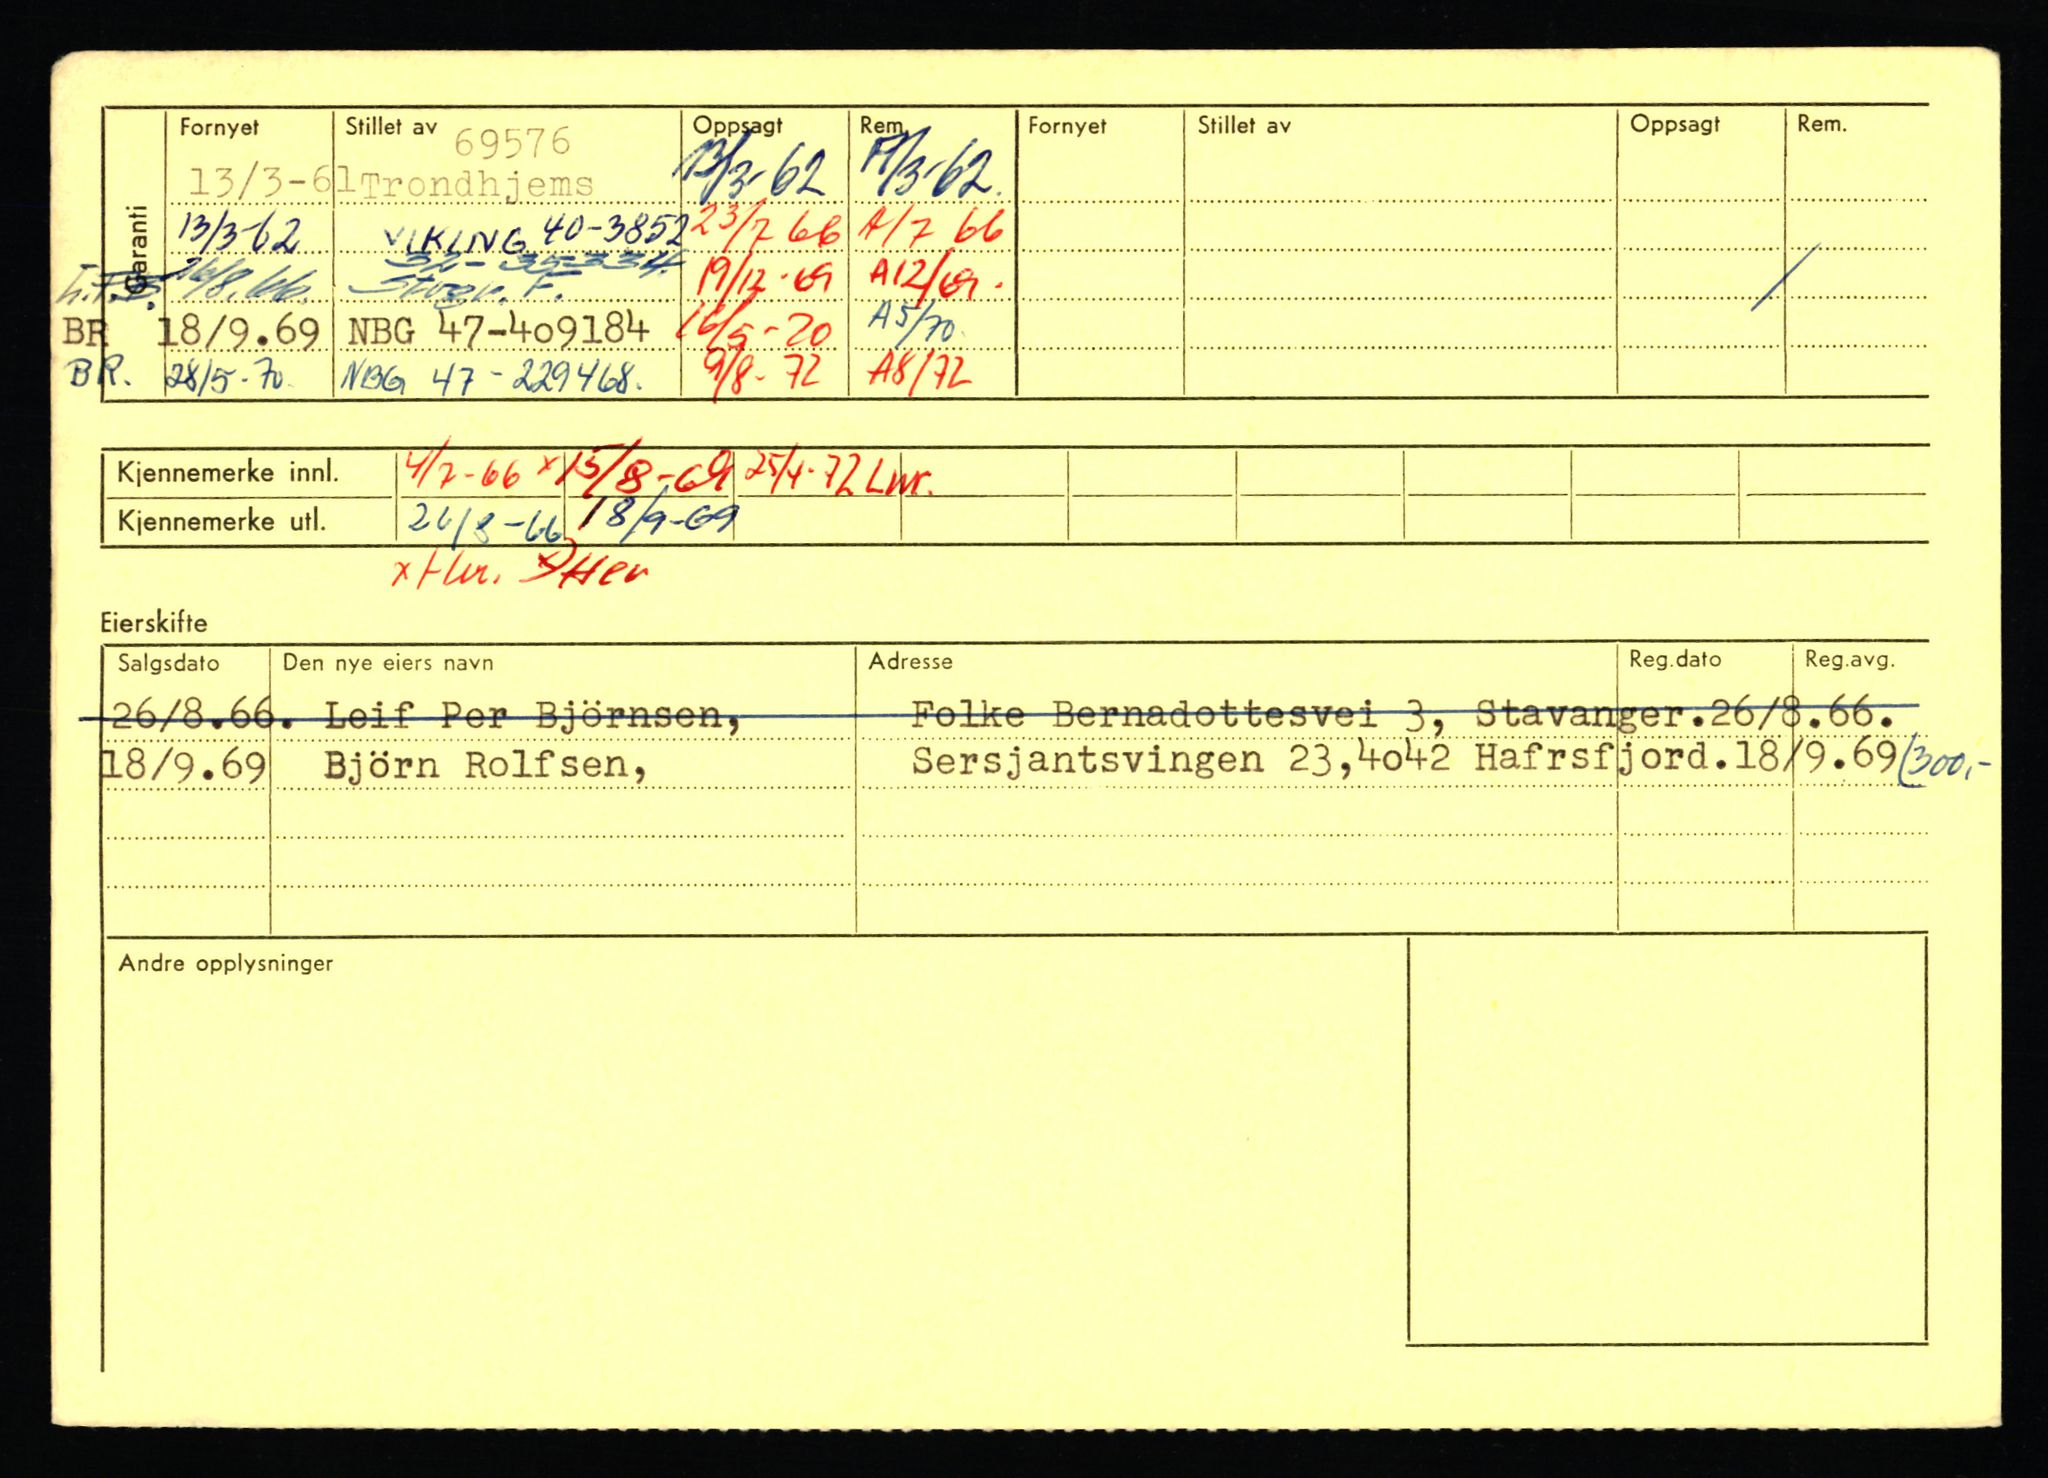 Garanti Fornyet Stillet av Oppsagt Rem. Fornyet Stillet av Oppsagt Rem.
69576
13/3-61 Trondhjems 13/3-62 A/3-62.
13/3-62 VIKING 40-3852 23/7 66 A/7 66
L.P.B. 26/8.66. 32-35334. Stvgr. F. 19/12-69 A12/69.
BR 18/9.69 NBG 47-4o9184 16/5-70 A5/70.
BR. 28/5-70. NBG 47-229468. 9/8-72 A8/72
Kjennemerke innl. 4/7-66 x 15/8-69 25/4-72 Lwr.
Kjennemerke utl. 26/8-66 18/9-69
Eierskifte
Salgsdato Den nye eiers navn Adresse Reg.dato Reg.avg.
26/8.66. Leif Per Björnsen, Folke Bernadottesvei 3, Stavanger. 26/8.66.
18/9.69 Björn Rolfsen, Sersjantsvingen 23,4o42 Hafrsfjord. 18/9.69 (300,-
Andre opplysninger